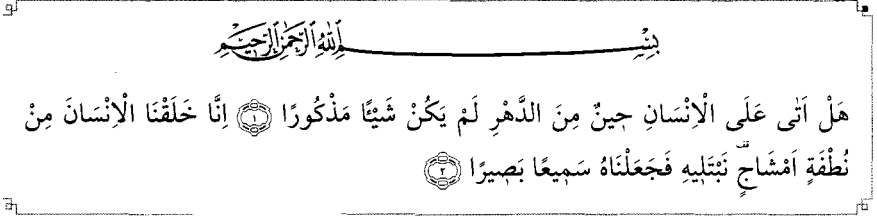 بِسْمِ اللّٰهِ الرَّحْمٰنِ الرَّحِيْمِ
هَلْ اَتٰى عَلَى الْاِنْسَانِ حٖينٌ مِنَ الدَّهْرِ لَمْ يَكُنْ شَيْـًٔا مَذْكُورًا ﴿١﴾ اِنَّا خَلَقْنَا الْاِنْسَانَ مِنْ
نُطْفَةٍ اَمْشَاجٍۗ نَبْتَلٖيهِ فَجَعَلْنَاهُ سَمٖيعًا بَصٖيرًا ﴿٢﴾